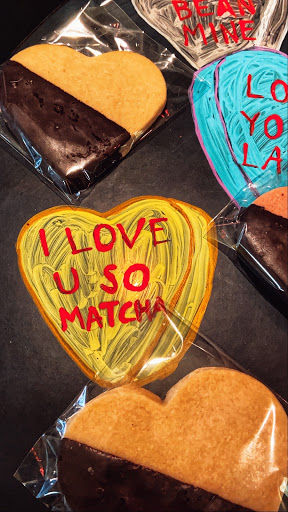 BEAN
MINE
LO
YO
LA
I LOVE
U SO
MATCHA